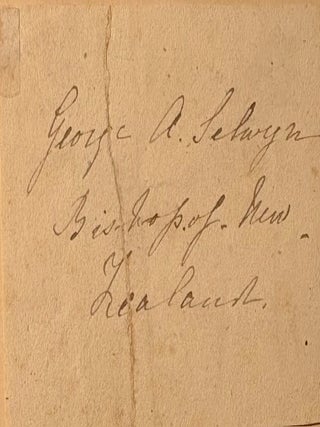 George A. Selwyn
Bishop. of. New
Zealand.